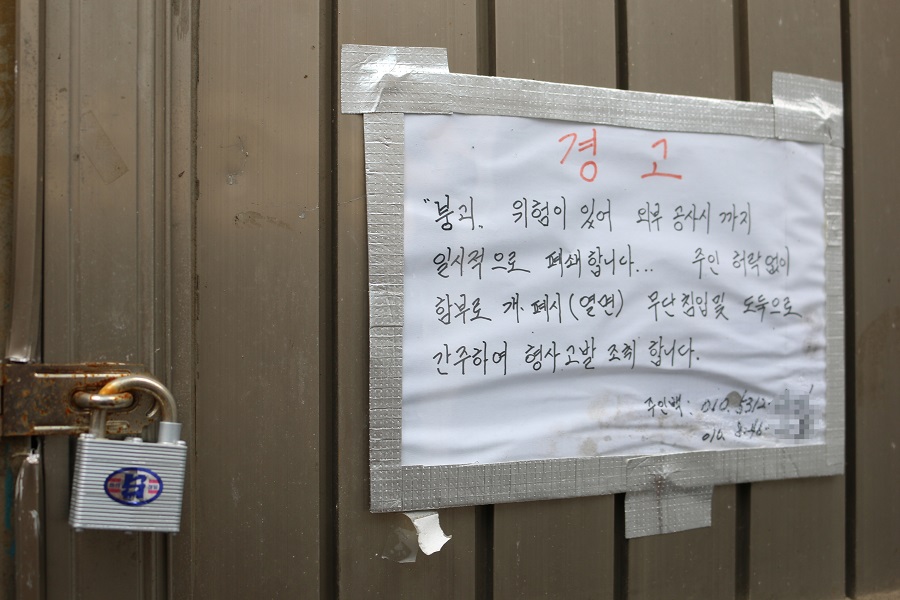 경 고
"붕괴. 위험이 있어 외부 공사시 까지
일시적으로 폐쇄합니다... 주인 허락없이
함부로 개·폐시(열면) 무단침입및 도둑으로
간주하여 형사고발 조취 합니다.
주인백: 010. 5312.